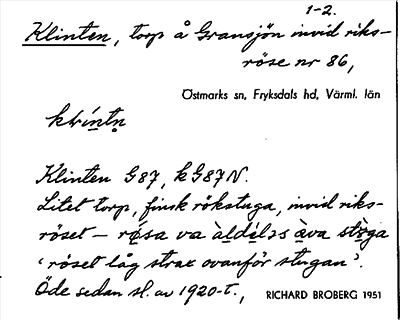 1-2.
Klinten, torp å Gransjön invid riks-
röse nr 86,
Östmarks sn, Fryksdals hd, Värml. län
Klinten G87, k G87 N.
Litet torp, finsk rökstuga, invid riks-
röset – rǿsa va àldeləs àva stòga
‘röset låg strax ovanför stugan’.
Öde sedan sl. av 1920-t.,
RICHARD BROBERG 1951